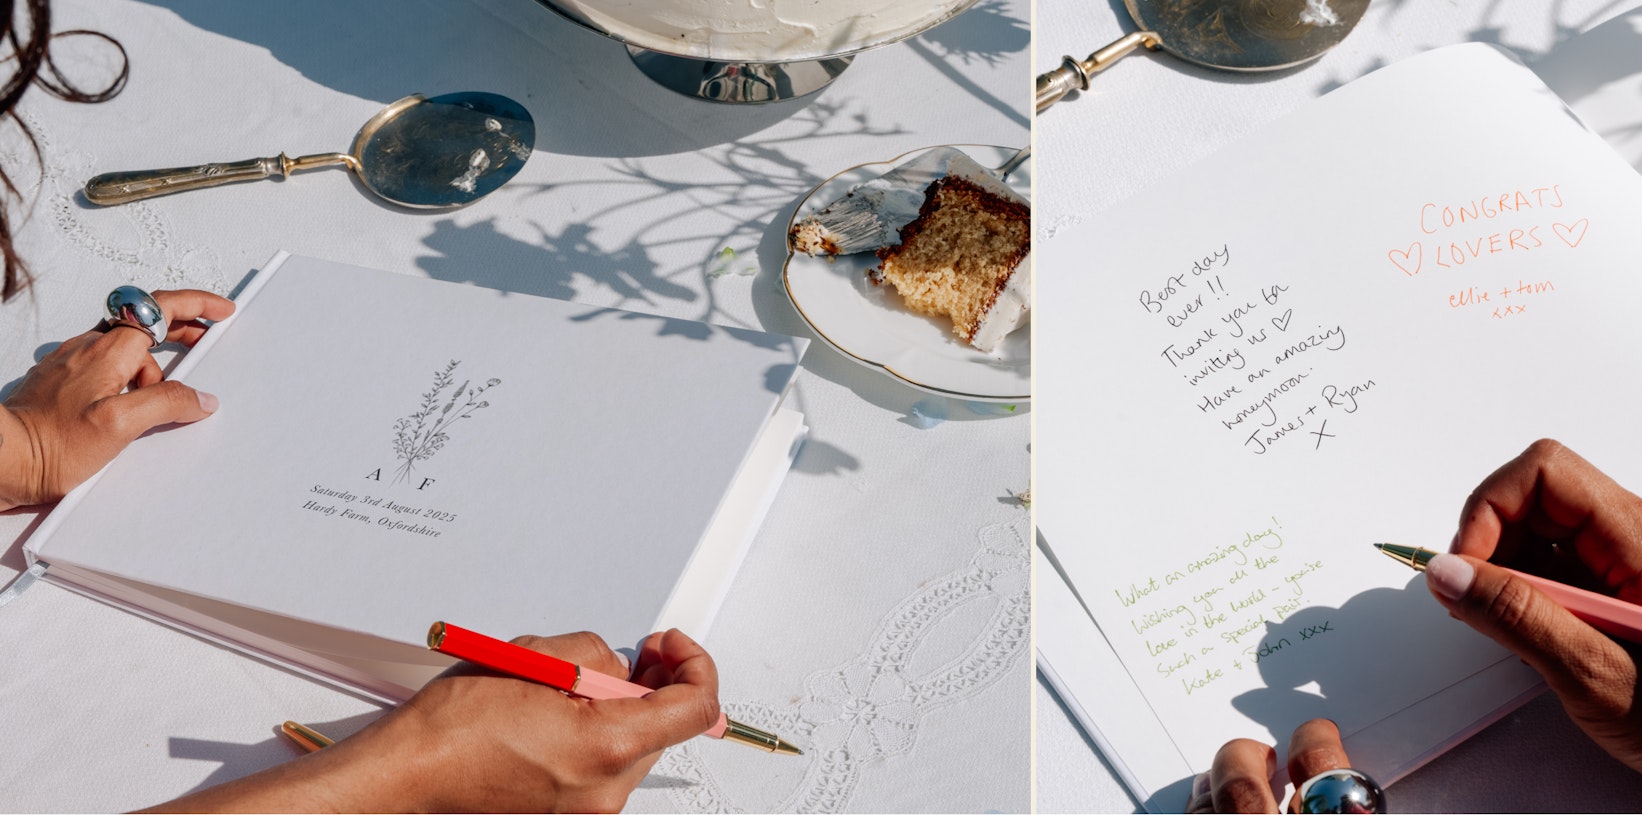 A F
Saturday 3rd August 2025
Hardy Farm, Oxfordshire
Best day
ever!!
Thank you for
inviting us ♡
Have an amazing
honeymoon.
James + Ryan
X
CONGRATS
♡ LOVERS ♡
ellie + tom
xxx
What an amazing day!
Wishing you all the
love in the world – you're
such a special pair.
Kate + John xxx